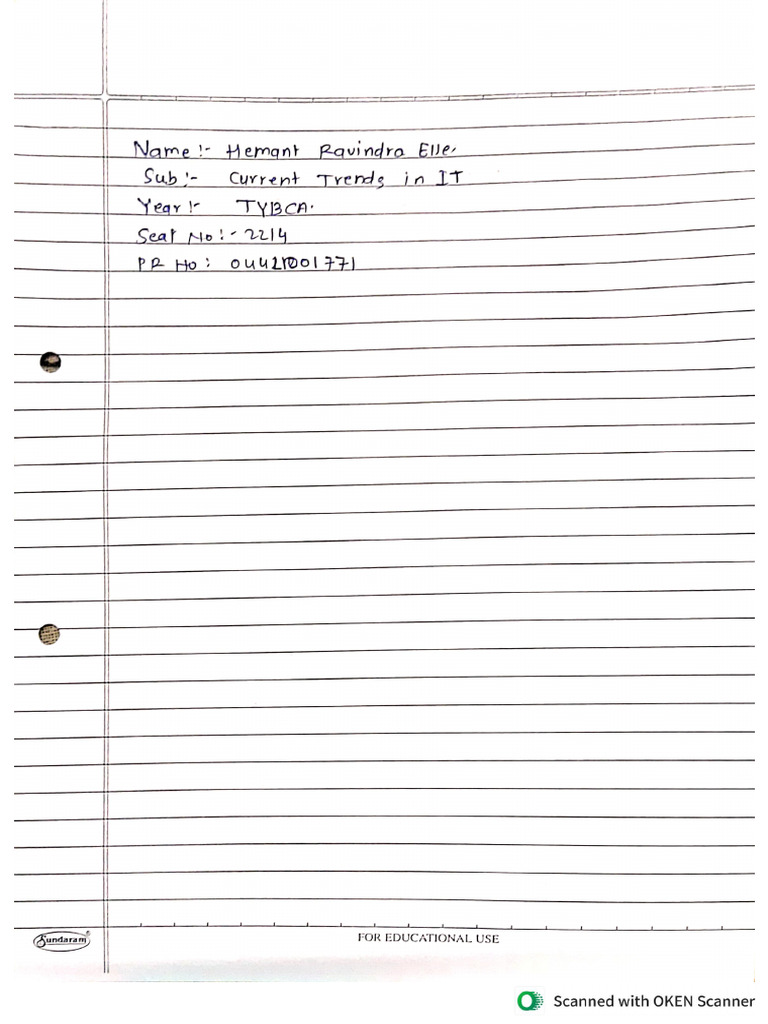 Name :- Hemant Ravindra Elle.
Sub :- Current Trends in IT
Year :- TYBCA.
Seat No :- 2214
PR No :
Sundaram®
FOR EDUCATIONAL USE
Scanned with OKEN Scanner